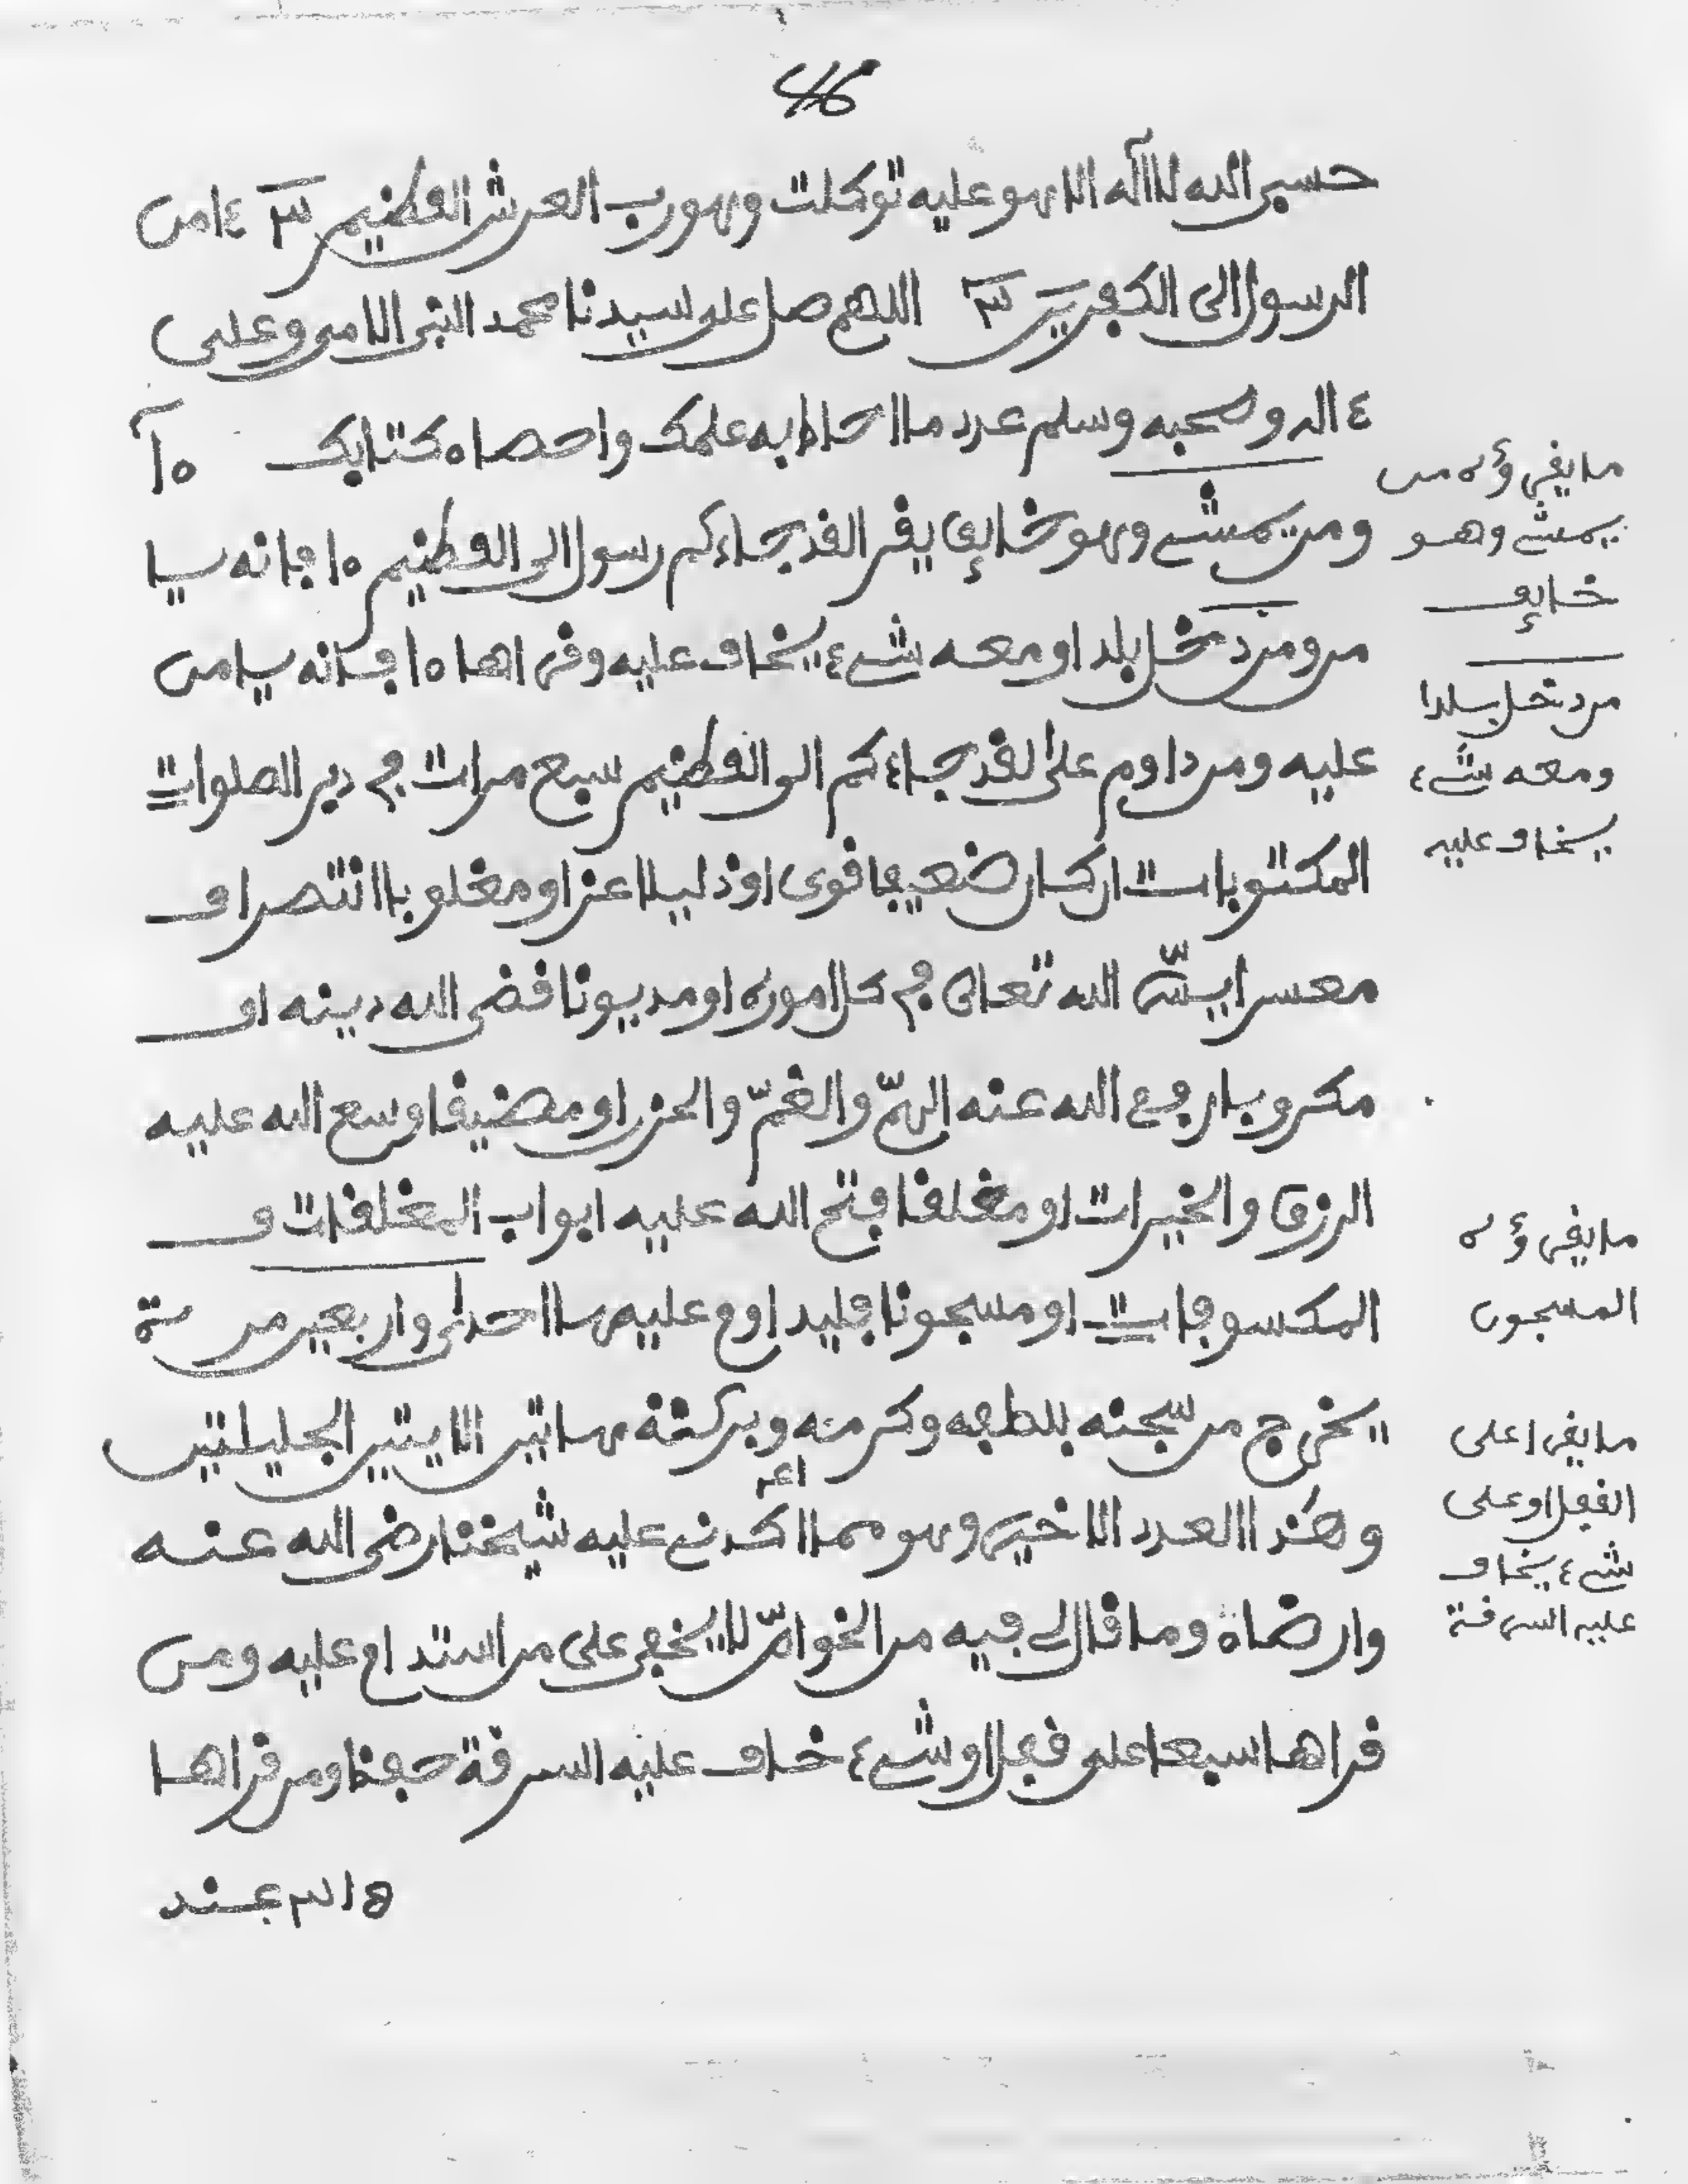 حسبي الله لا اله الا هو عليه توكلت وهو رب العرش العظيم ٣ ءامن
الرسول الى الكفرين ٣ اللهم صل على سيدنا محمد النبي الامي وعلى
ءاله وصحبه وسلم عدد ما احاط به علمك واحصاه كتابك ه ا
ومن يمشي وهو خايف يقرا لقد جاءكم رسول الى العظيم ه ا فانه يا
من ومن دخل بلد او معه شيء يخاف عليه وقراها ه ا فانه يامن
عليه ومن داوم على لقد جاءكم الى العظيم سبع مرات في دبر الصلوات
المكتوبات ان كان ضعيفا قوى او ذليلا اعز او مغلوبا انتصر او
معسرا يسر الله تعالى في كل اموره او مديونا قضى الله دينه او
مكروبا فرج الله عنه الهمّ والغمّ والحزن او مضيقا وسع الله عليه
الرزق والخيرات او مغلقا فتح الله عليه ابواب المغلقات و
المكسوفات او مسجونا فليداوم عليها احدى واربعين مرة
يخرج من سجنه بلطفه وكرمه وبركة هاتين الايتين الجليلتين
وهذا العدد الاخير وهو مما اكدني عليه شيخنا رضي الله عنه
وارضاه وما قال لي فيه من الخواصّ لا يخفى على من استدام عليه ومن
قراها سبعا على قفل او شيء خاف عليه السرقة حفظ ومن قراها
عند
ما يقرؤه من
يمشي وهو
خايف
من دخل بلدا
ومعه شيء
يخاف عليه
ما يقرؤه
المسجون
ما يقرا على
القفل او على
شيء يخاف
عليه السرقة